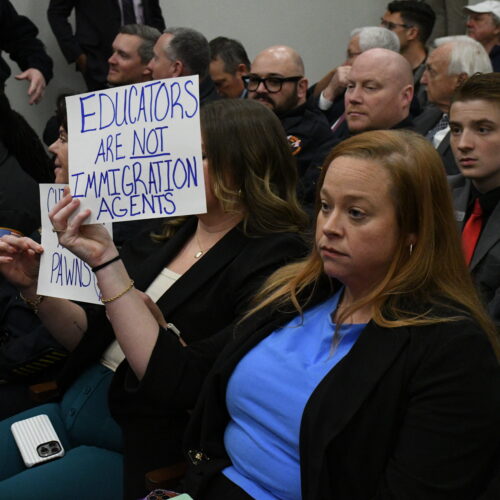 EDUCATORS
ARE NOT
IMMIGRATION
AGENTS
PAWNS